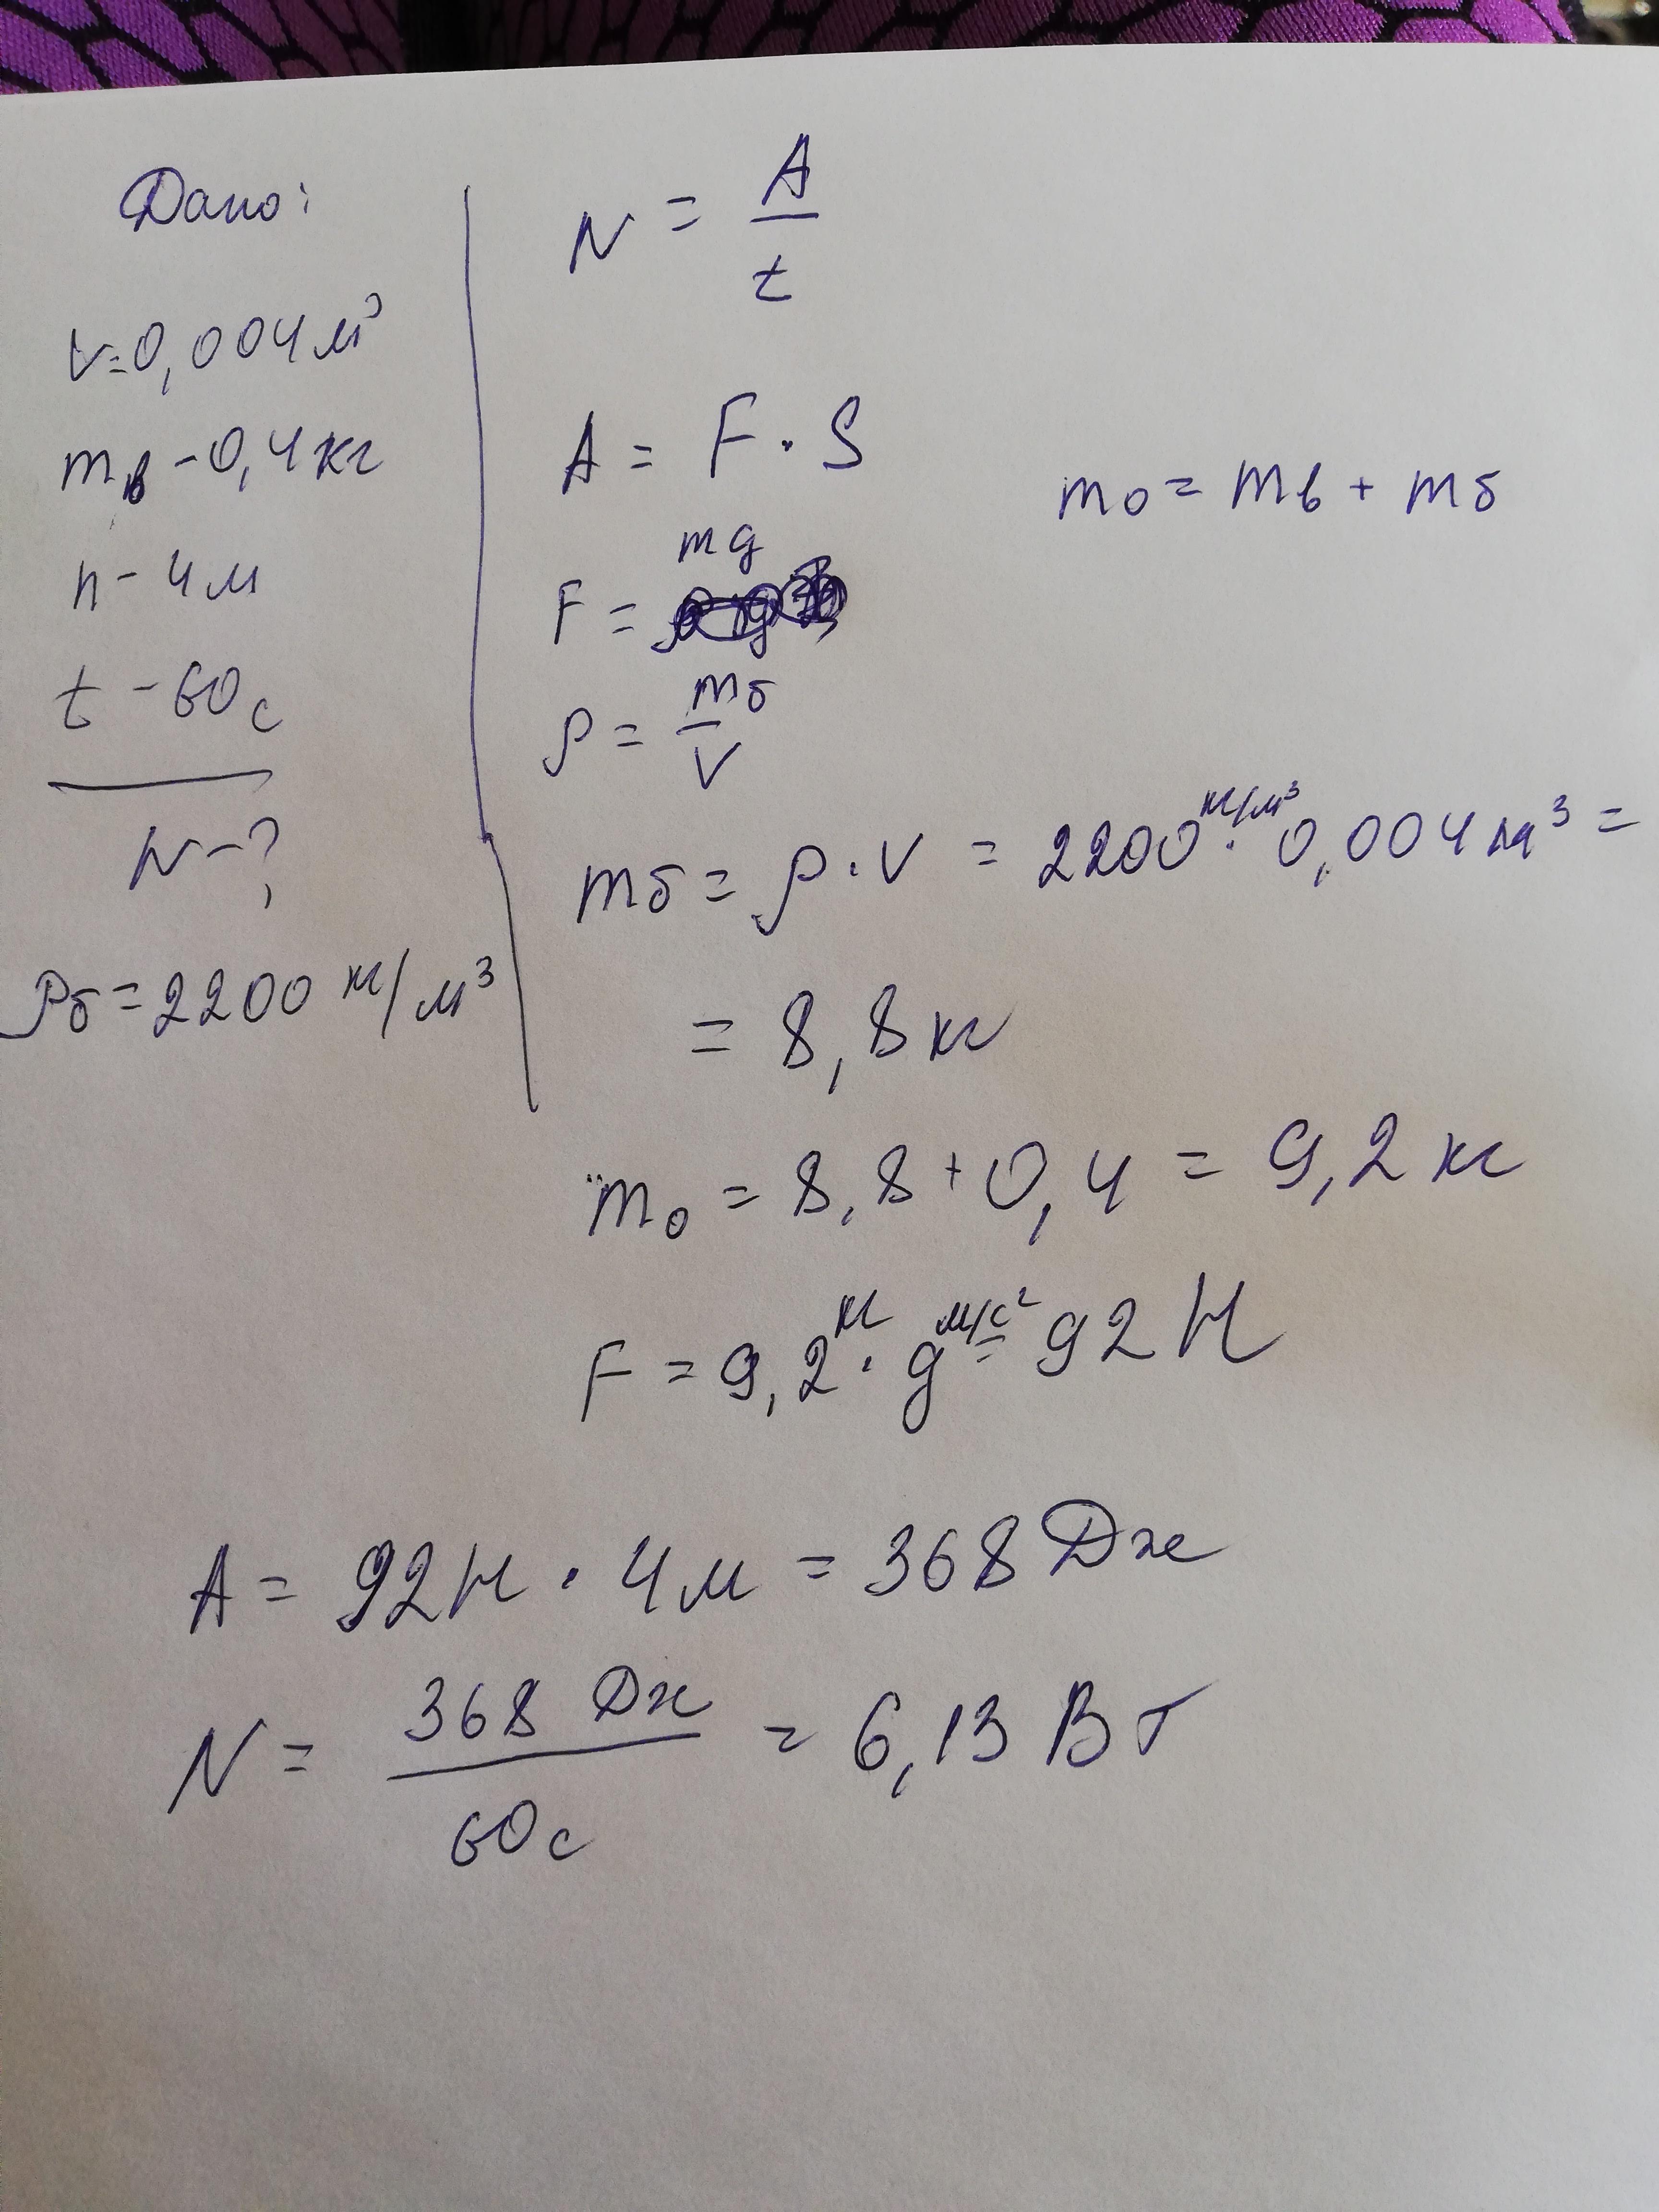 Дано:
V=0,004 м³
mв - 0,4 кг
h - 4 м
t - 60 с
N - ?
ρб = 2200 кг/м³
N = A/t
A = F · S
mо = mв + mб
F = mg
ρ = mб/V
mб = ρ · V = 2200 кг/м³ · 0,004 м³ =
= 8,8 кг
mо = 8,8 + 0,4 = 9,2 кг
F = 9,2 кг · g м/с² = 92 Н
A = 92 Н · 4 м = 368 Дж
N = 368 Дж / 60 с = 6,13 Вт